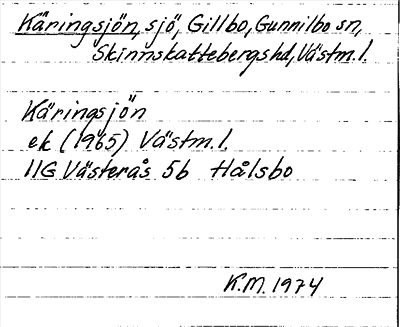 Käringsjön, sjö, Gillbo, Gunnilbo sn,
Skinnskattebergs hd, Västm.l.
Käringsjön
ek (1965) Västm.l.
11G Västerås 5b Hålsbo
K.M. 1974